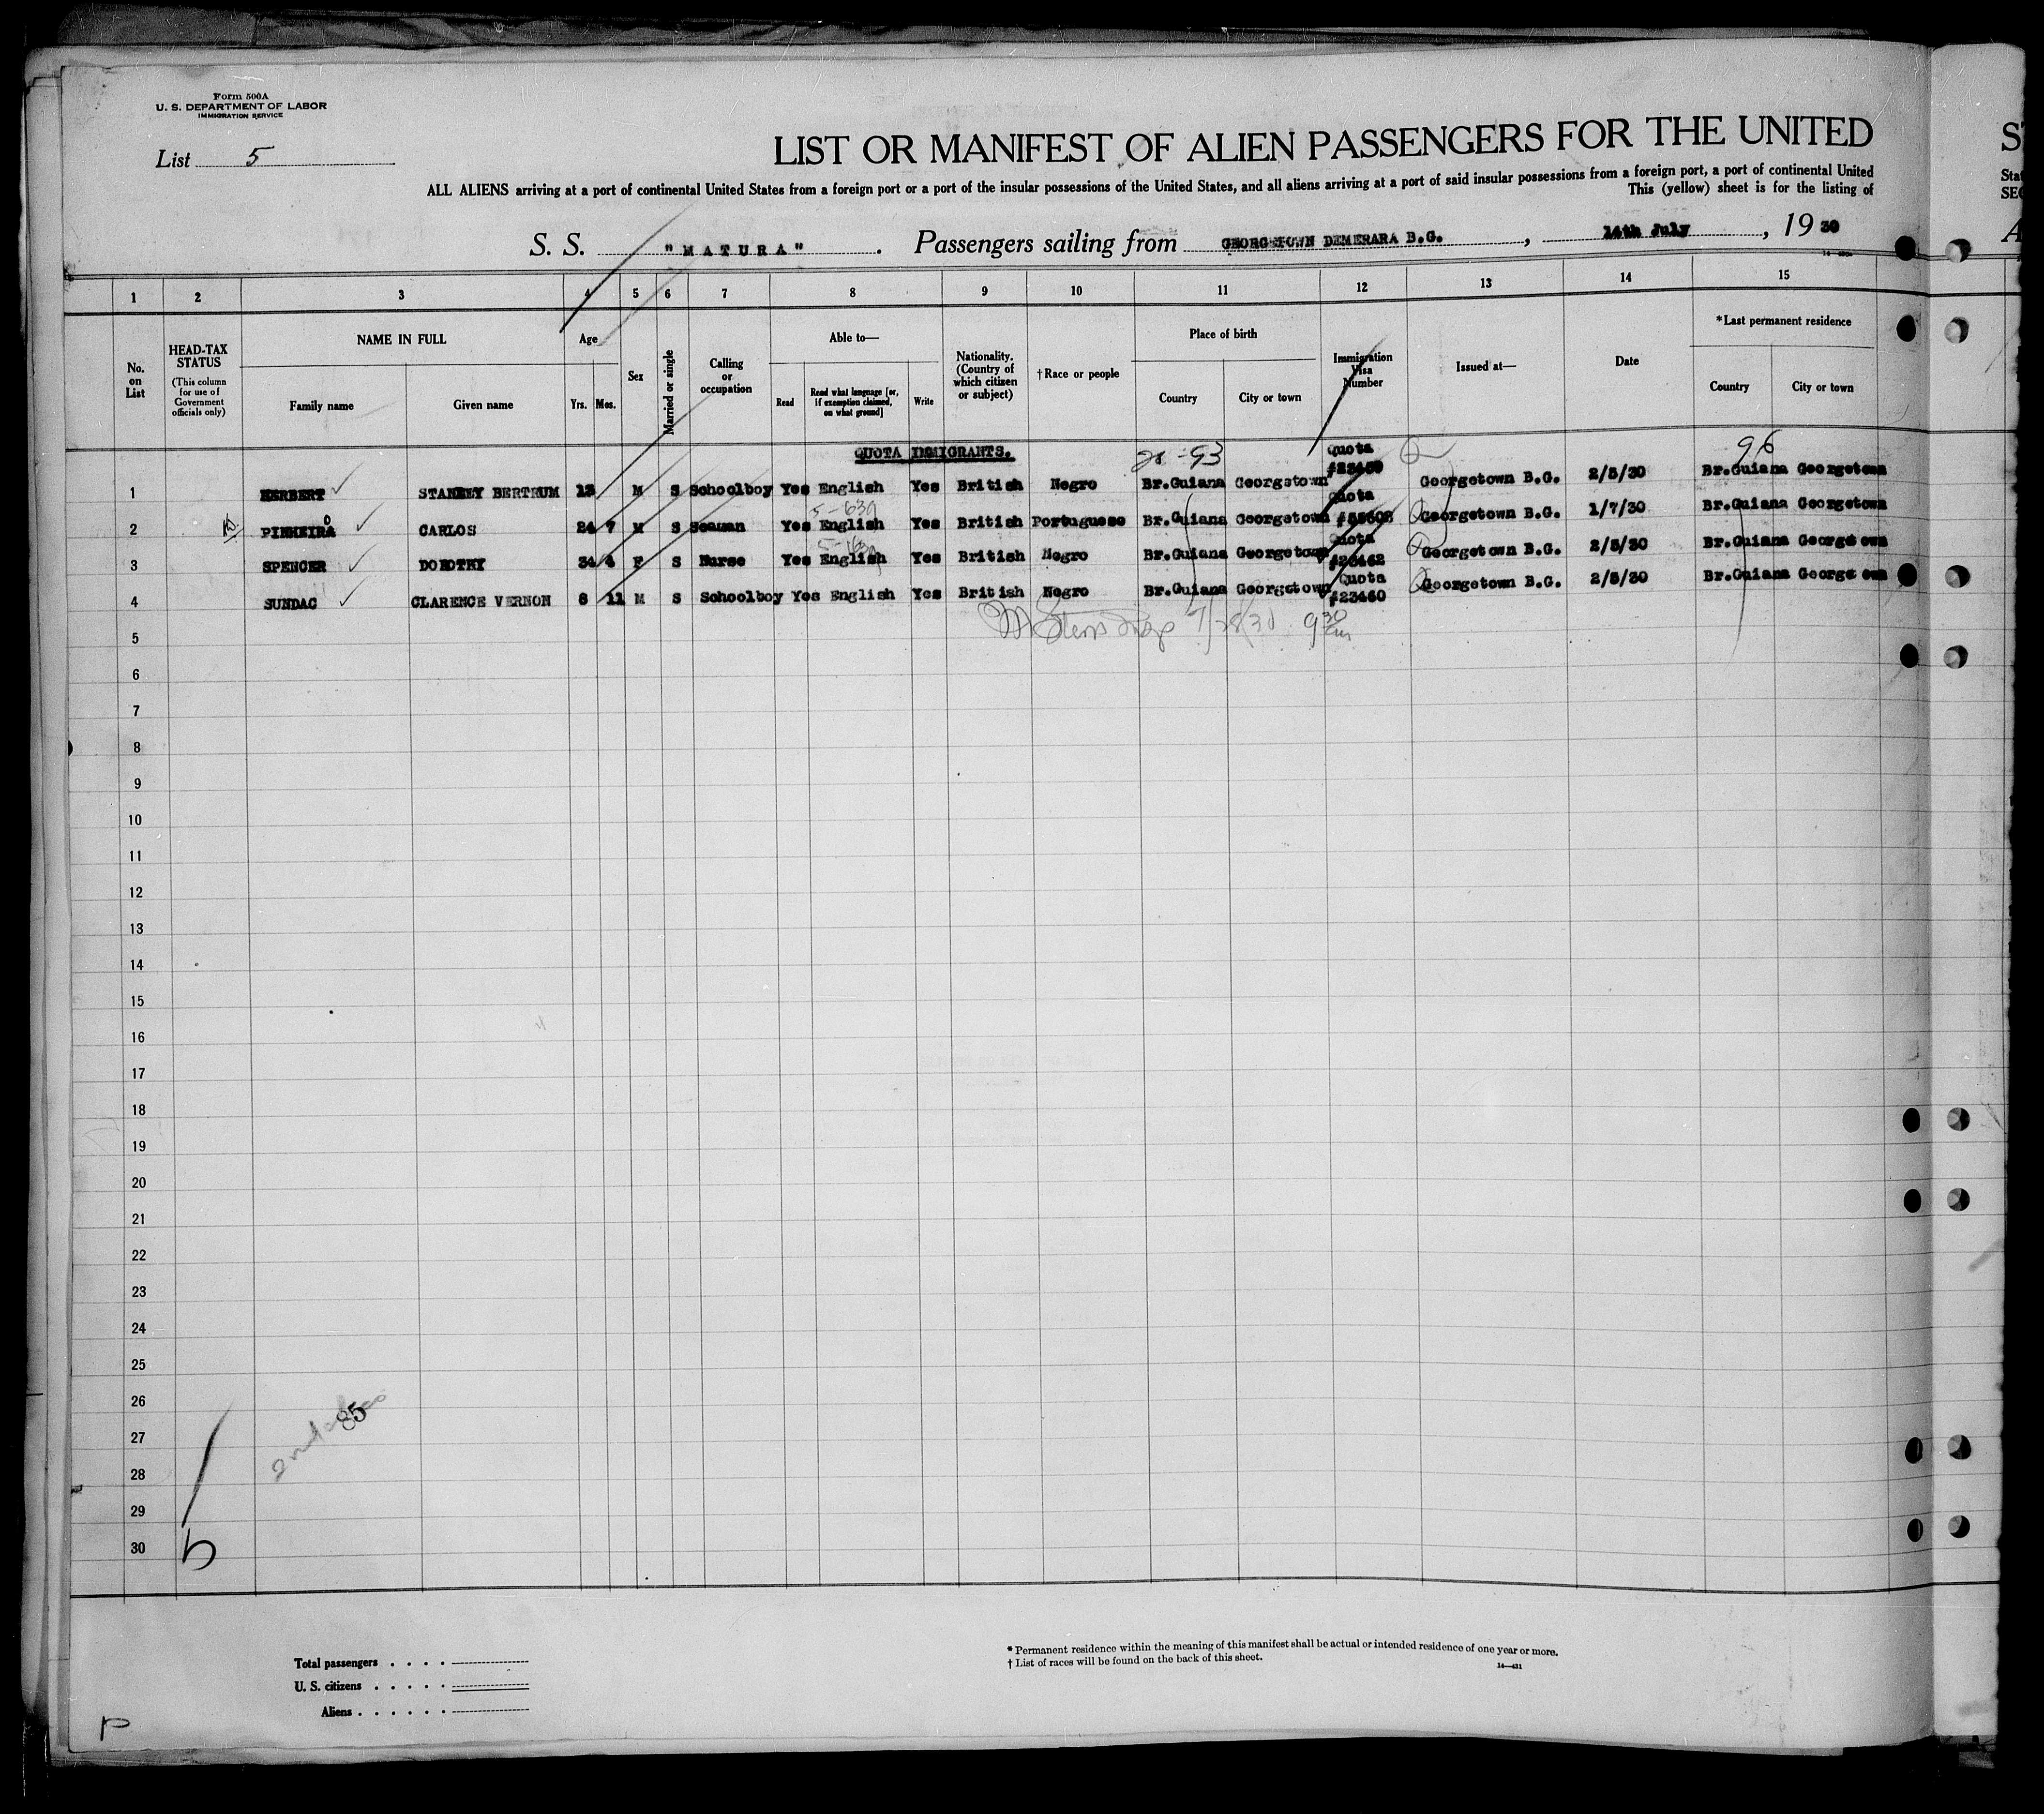 Form 500A
U. S. DEPARTMENT OF LABOR
IMMIGRATION SERVICE
List 5
LIST OR MANIFEST OF ALIEN PASSENGERS FOR THE UNITED
ALL ALIENS arriving at a port of continental United States from a foreign port or a port of the insular possessions of the United States, and all aliens arriving at a port of said insular possessions from a foreign port, a port of continental United
This (yellow) sheet is for the listing of
S. S. "MATURA". Passengers sailing from GEORGETOWN DEMERARA B.G., 14th July, 1930
1 2 3 4 5 6 7 8 9 10 11 12 13 14 15
No. on List
HEAD-TAX STATUS (This column for use of Government officials only)
NAME IN FULL Family name Given name
Age Yrs. Mos.
Sex
Married or single
Calling or occupation
Able to— Read Read what language [or, if exemption claimed, on what ground] Write
Nationality. (Country of which citizen or subject)
†Race or people
Place of birth Country City or town
Immigration Visa Number
Issued at—
Date
*Last permanent residence Country City or town
QUOTA IMMIGRANTS. 93 96
1 HERBERT STANLEY BERTRUM 13 M S Schoolboy Yes English Yes British Negro Br.Guiana Georgetown Quota Georgetown B.G. 2/5/30 Br.Guiana Georgetown
2 PINHEIRA O CARLOS 24 7 M S Seaman Yes English Yes British Portuguese Br.Guiana Georgetown Quota Georgetown B.G. 1/7/30 Br.Guiana Georgetown
3 SPENCER DOROTHY 34 4 F S Nurse Yes English Yes British Negro Br.Guiana Georgetown Quota #23462 Georgetown B.G. 2/5/30 Br.Guiana Georgetown
4 SUNDAC CLARENCE VERNON 8 11 M S Schoolboy Yes English Yes British Negro Br.Guiana Georgetown Quota #23460 Georgetown B.G. 2/5/30 Br.Guiana Georgetown
7/28/30 9 30
5
6
7
8
9
10
11
12
13
14
15
16
17
18
19
20
21
22
23
24
25
26
85
27
28
29
30
5
Total passengers
U. S. citizens
Aliens
* Permanent residence within the meaning of this manifest shall be actual or intended residence of one year or more.
† List of races will be found on the back of this sheet.
14—431
P